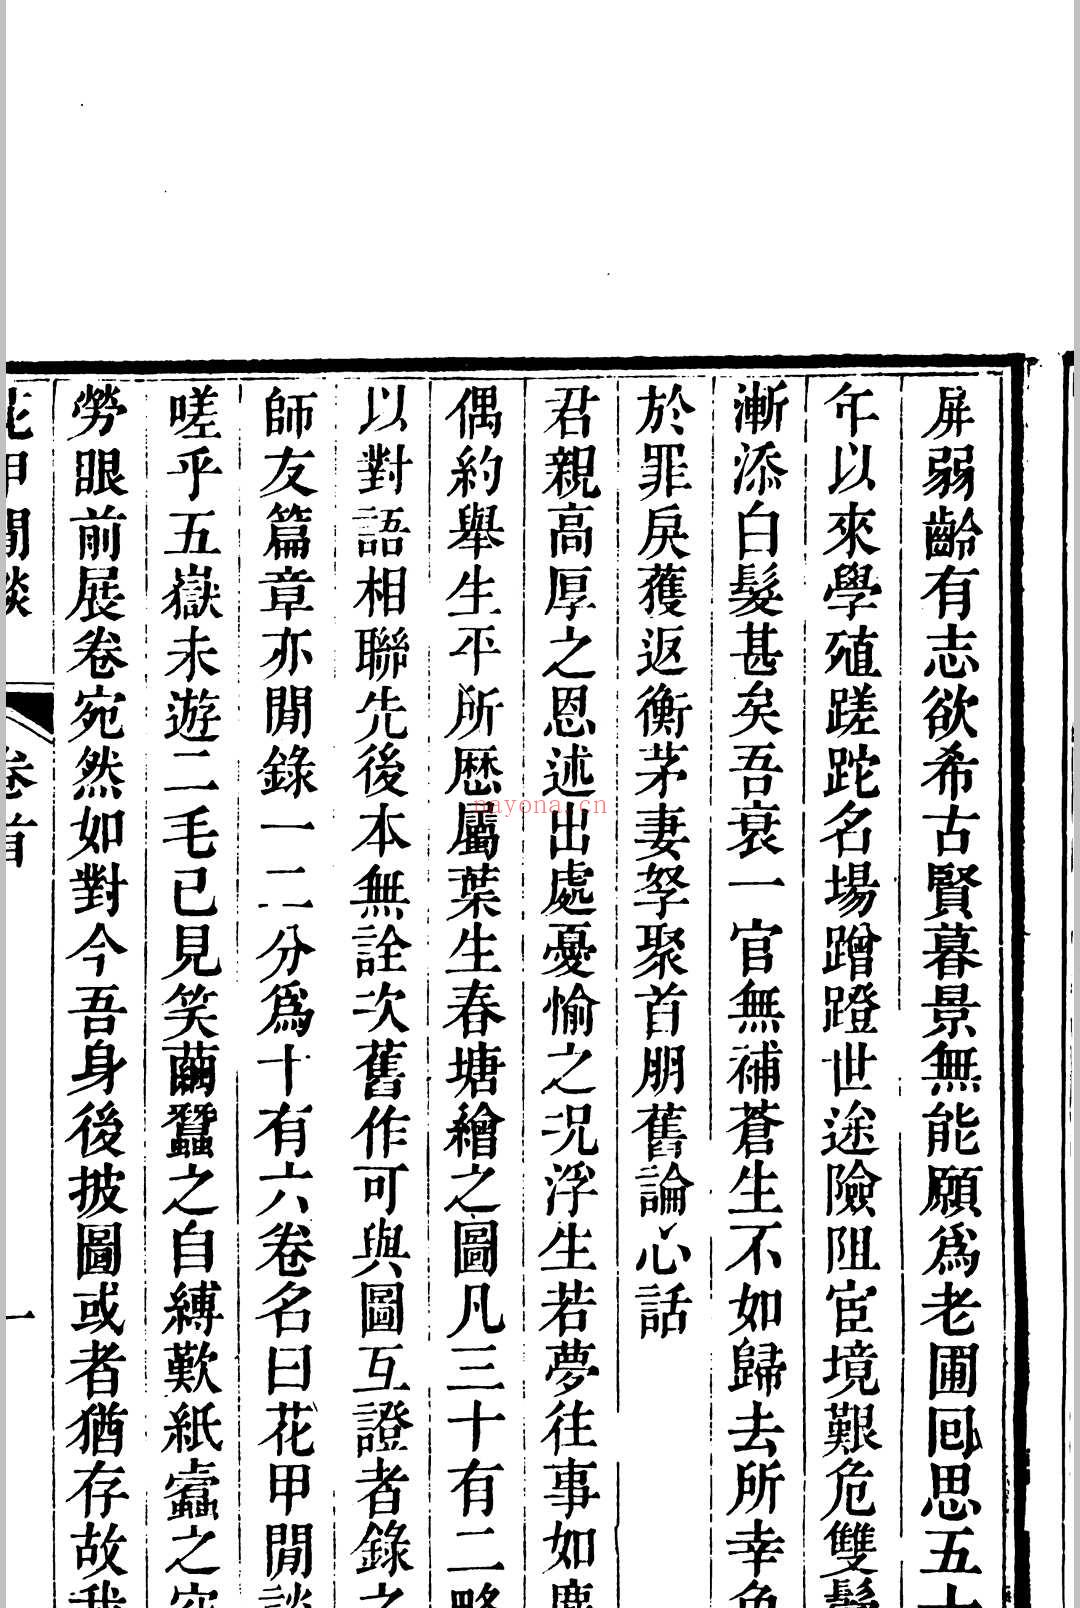 屏弱齡有志欲希古賢暮景無能願爲老圃回思五十
年以來學殖蹉跎名場蹭蹬世途險阻宦境艱危雙鬢
漸添白髮甚矣吾衰一官無補蒼生不如歸去所幸免
於罪戾獲返衡茅妻孥聚首朋舊論心話
君親高厚之恩述出處憂愉之况浮生若夢往事如塵
偶約舉生平所歷屬葉生春塘繪之圖凡三十有二略
以對語相聯先後本無詮次舊作可與圖互證者錄之
師友篇章亦閒錄一二分爲十有六卷名曰花甲閒談
嗟乎五嶽未遊二毛已見笑繭蠶之自縛歎紙蠹之
勞眼前展卷宛然如對今吾身後披圖或者猶存故我
花甲閒談 卷首 一
nayona.cn